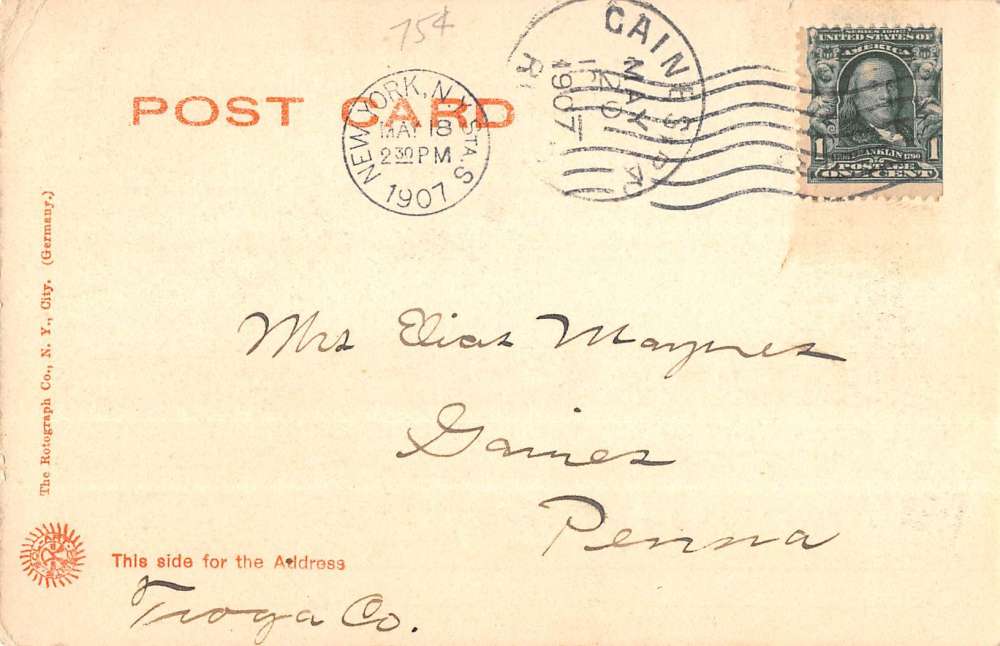 75¢
POST CARD
NEW YORK, N.Y. STA. S
MAY 18
2 30 PM
1907
GAINES, PA.
MAY
20
1907
SERIES 1902
UNITED STATES OF
AMERICA
1 FRANKLIN 1790 1
POSTAGE
ONE CENT
The Rotograph Co., N. Y., City. (Germany.)
Mrs Elias Maynes
Gaines
Penna
This side for the Address
Tioga Co.